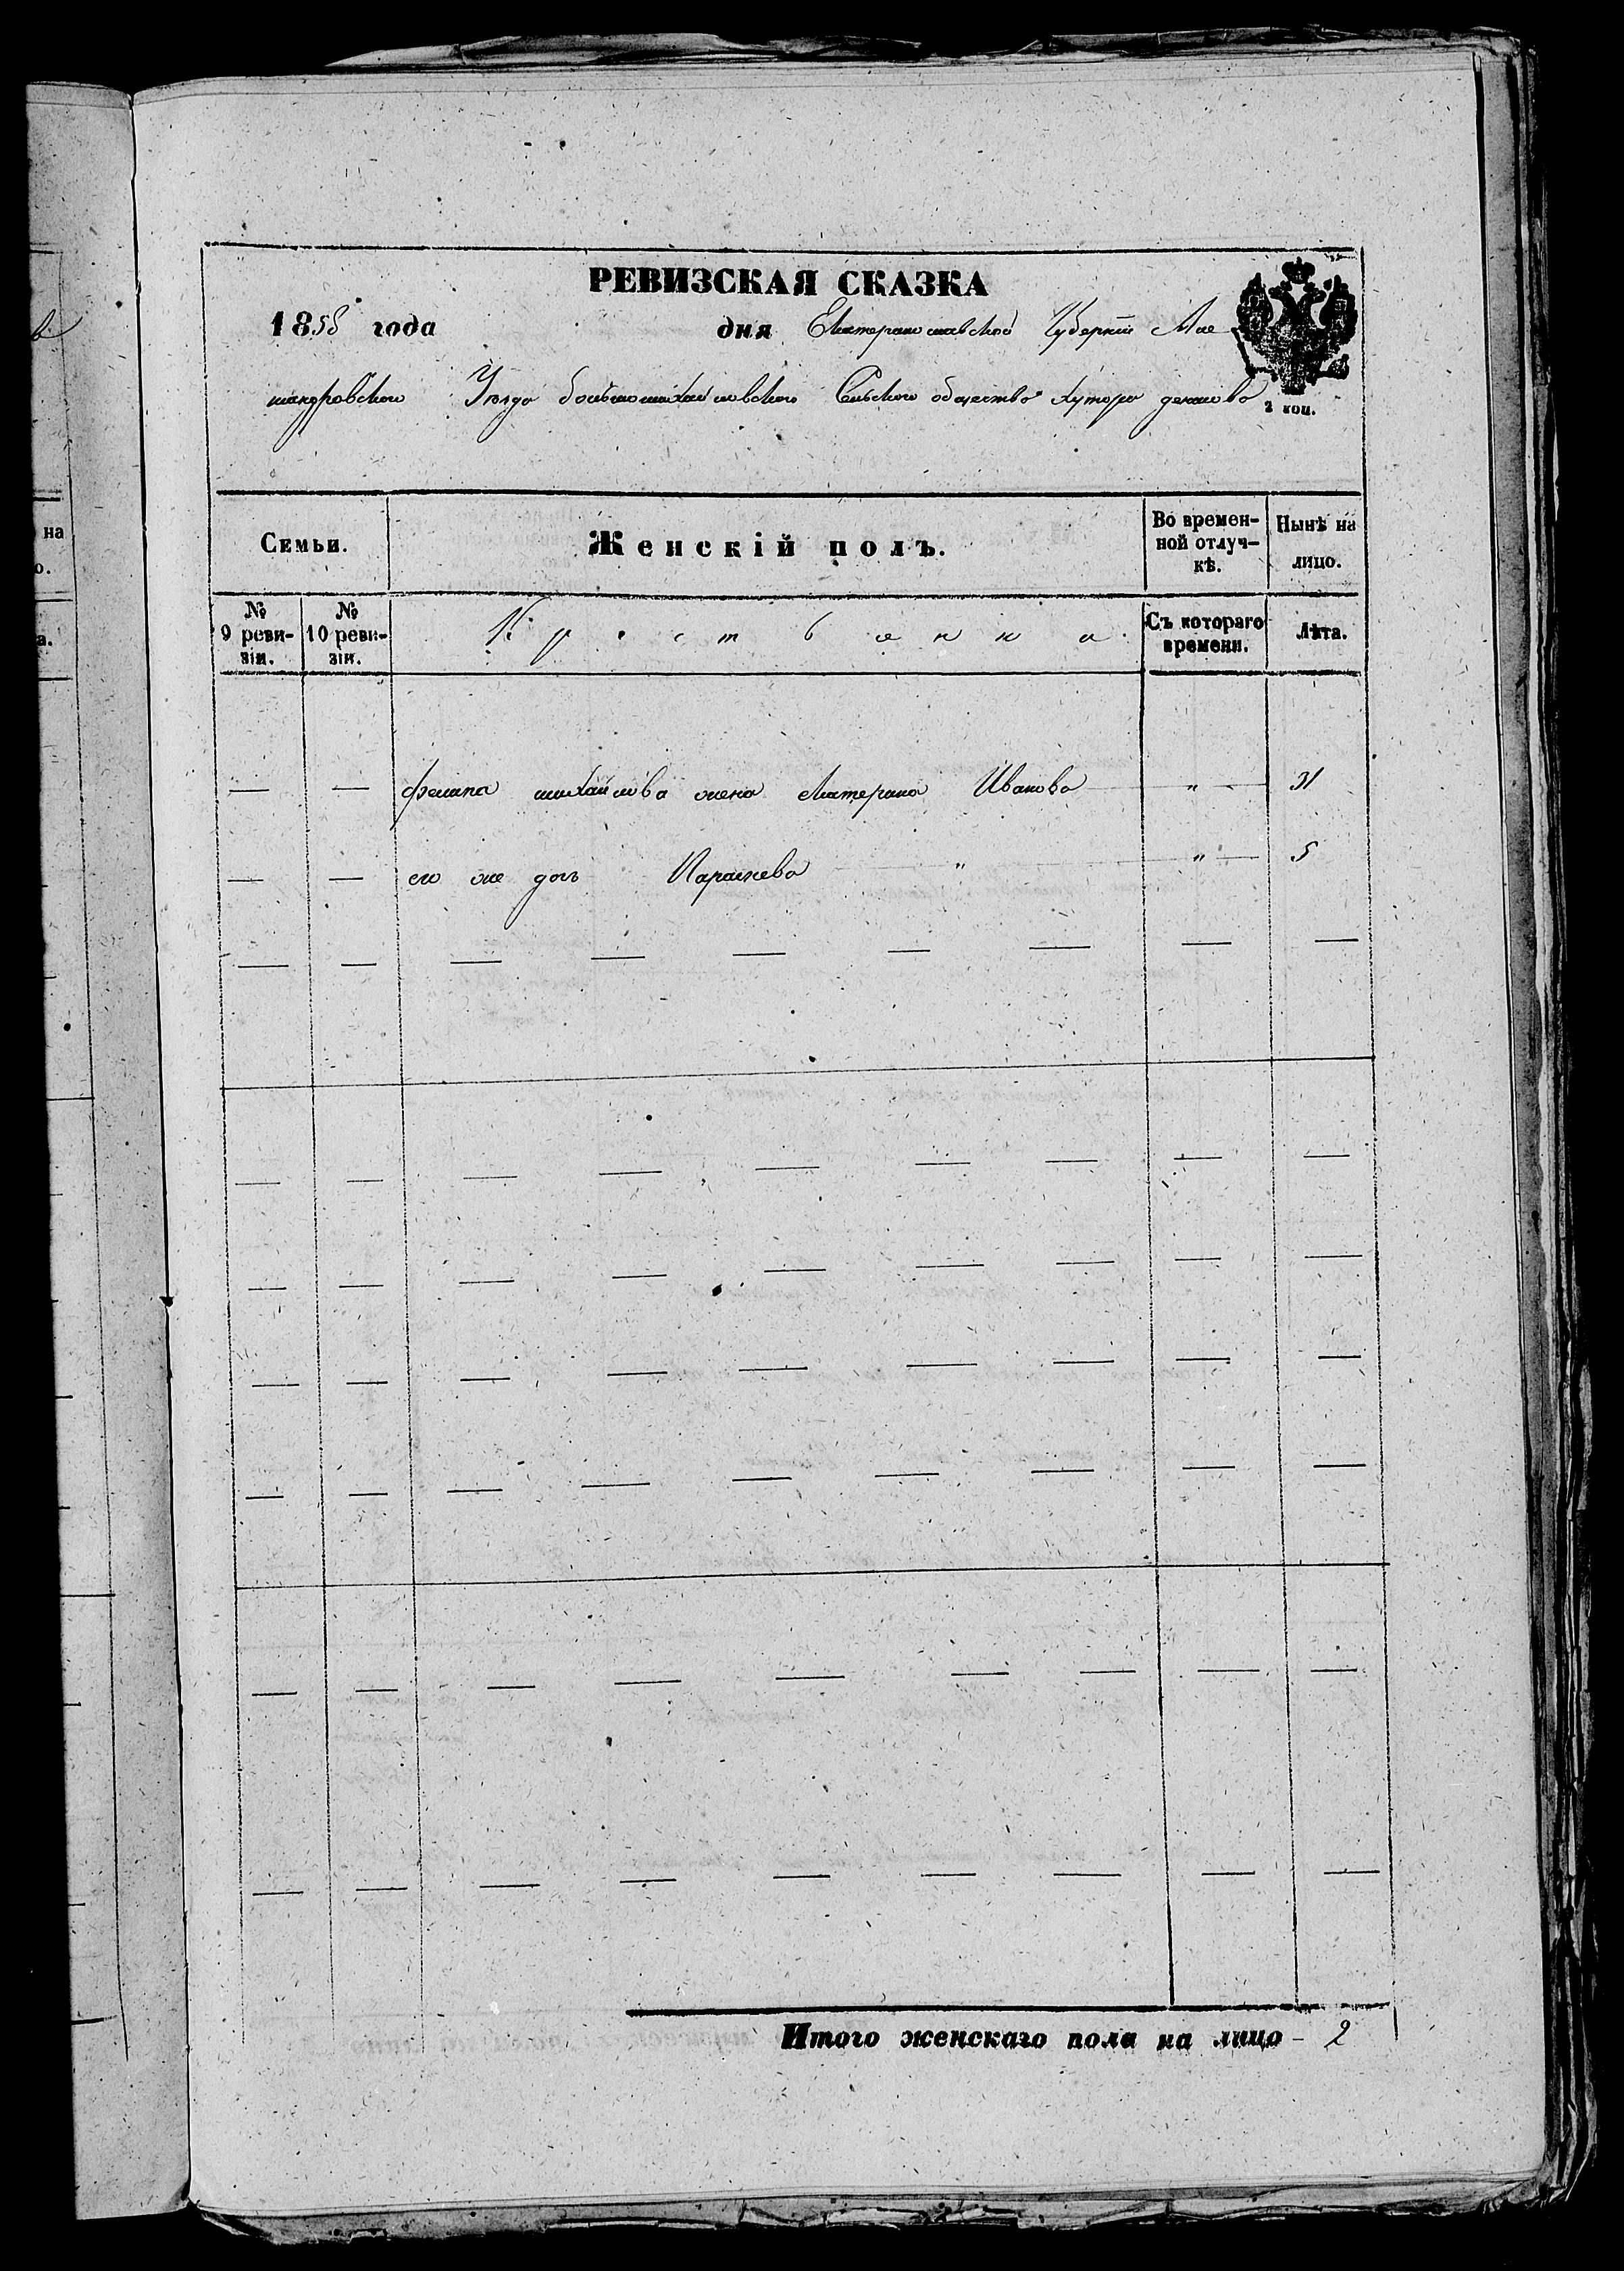 РЕВИЗСКАЯ СКАЗКА
1858 года дня Екатеринославской Губернии Але
ксандровского Уезда больше михайловского Сельского общества хутора
2 коп.
Семьи. Женскій полъ. Во времен-ной отлуч-кѣ. Нынѣ на лицо.
№ 9 реви-зіи. № 10 реви-зіи. Крестьянка. Съ котораго времени. Лѣта.
— — филипа михайлова жена Катерина Иванова — " — 31
— — его же дочь Параскева — " — " — 5
Итого женскаго пола на лицо - 2
на
о.
а.